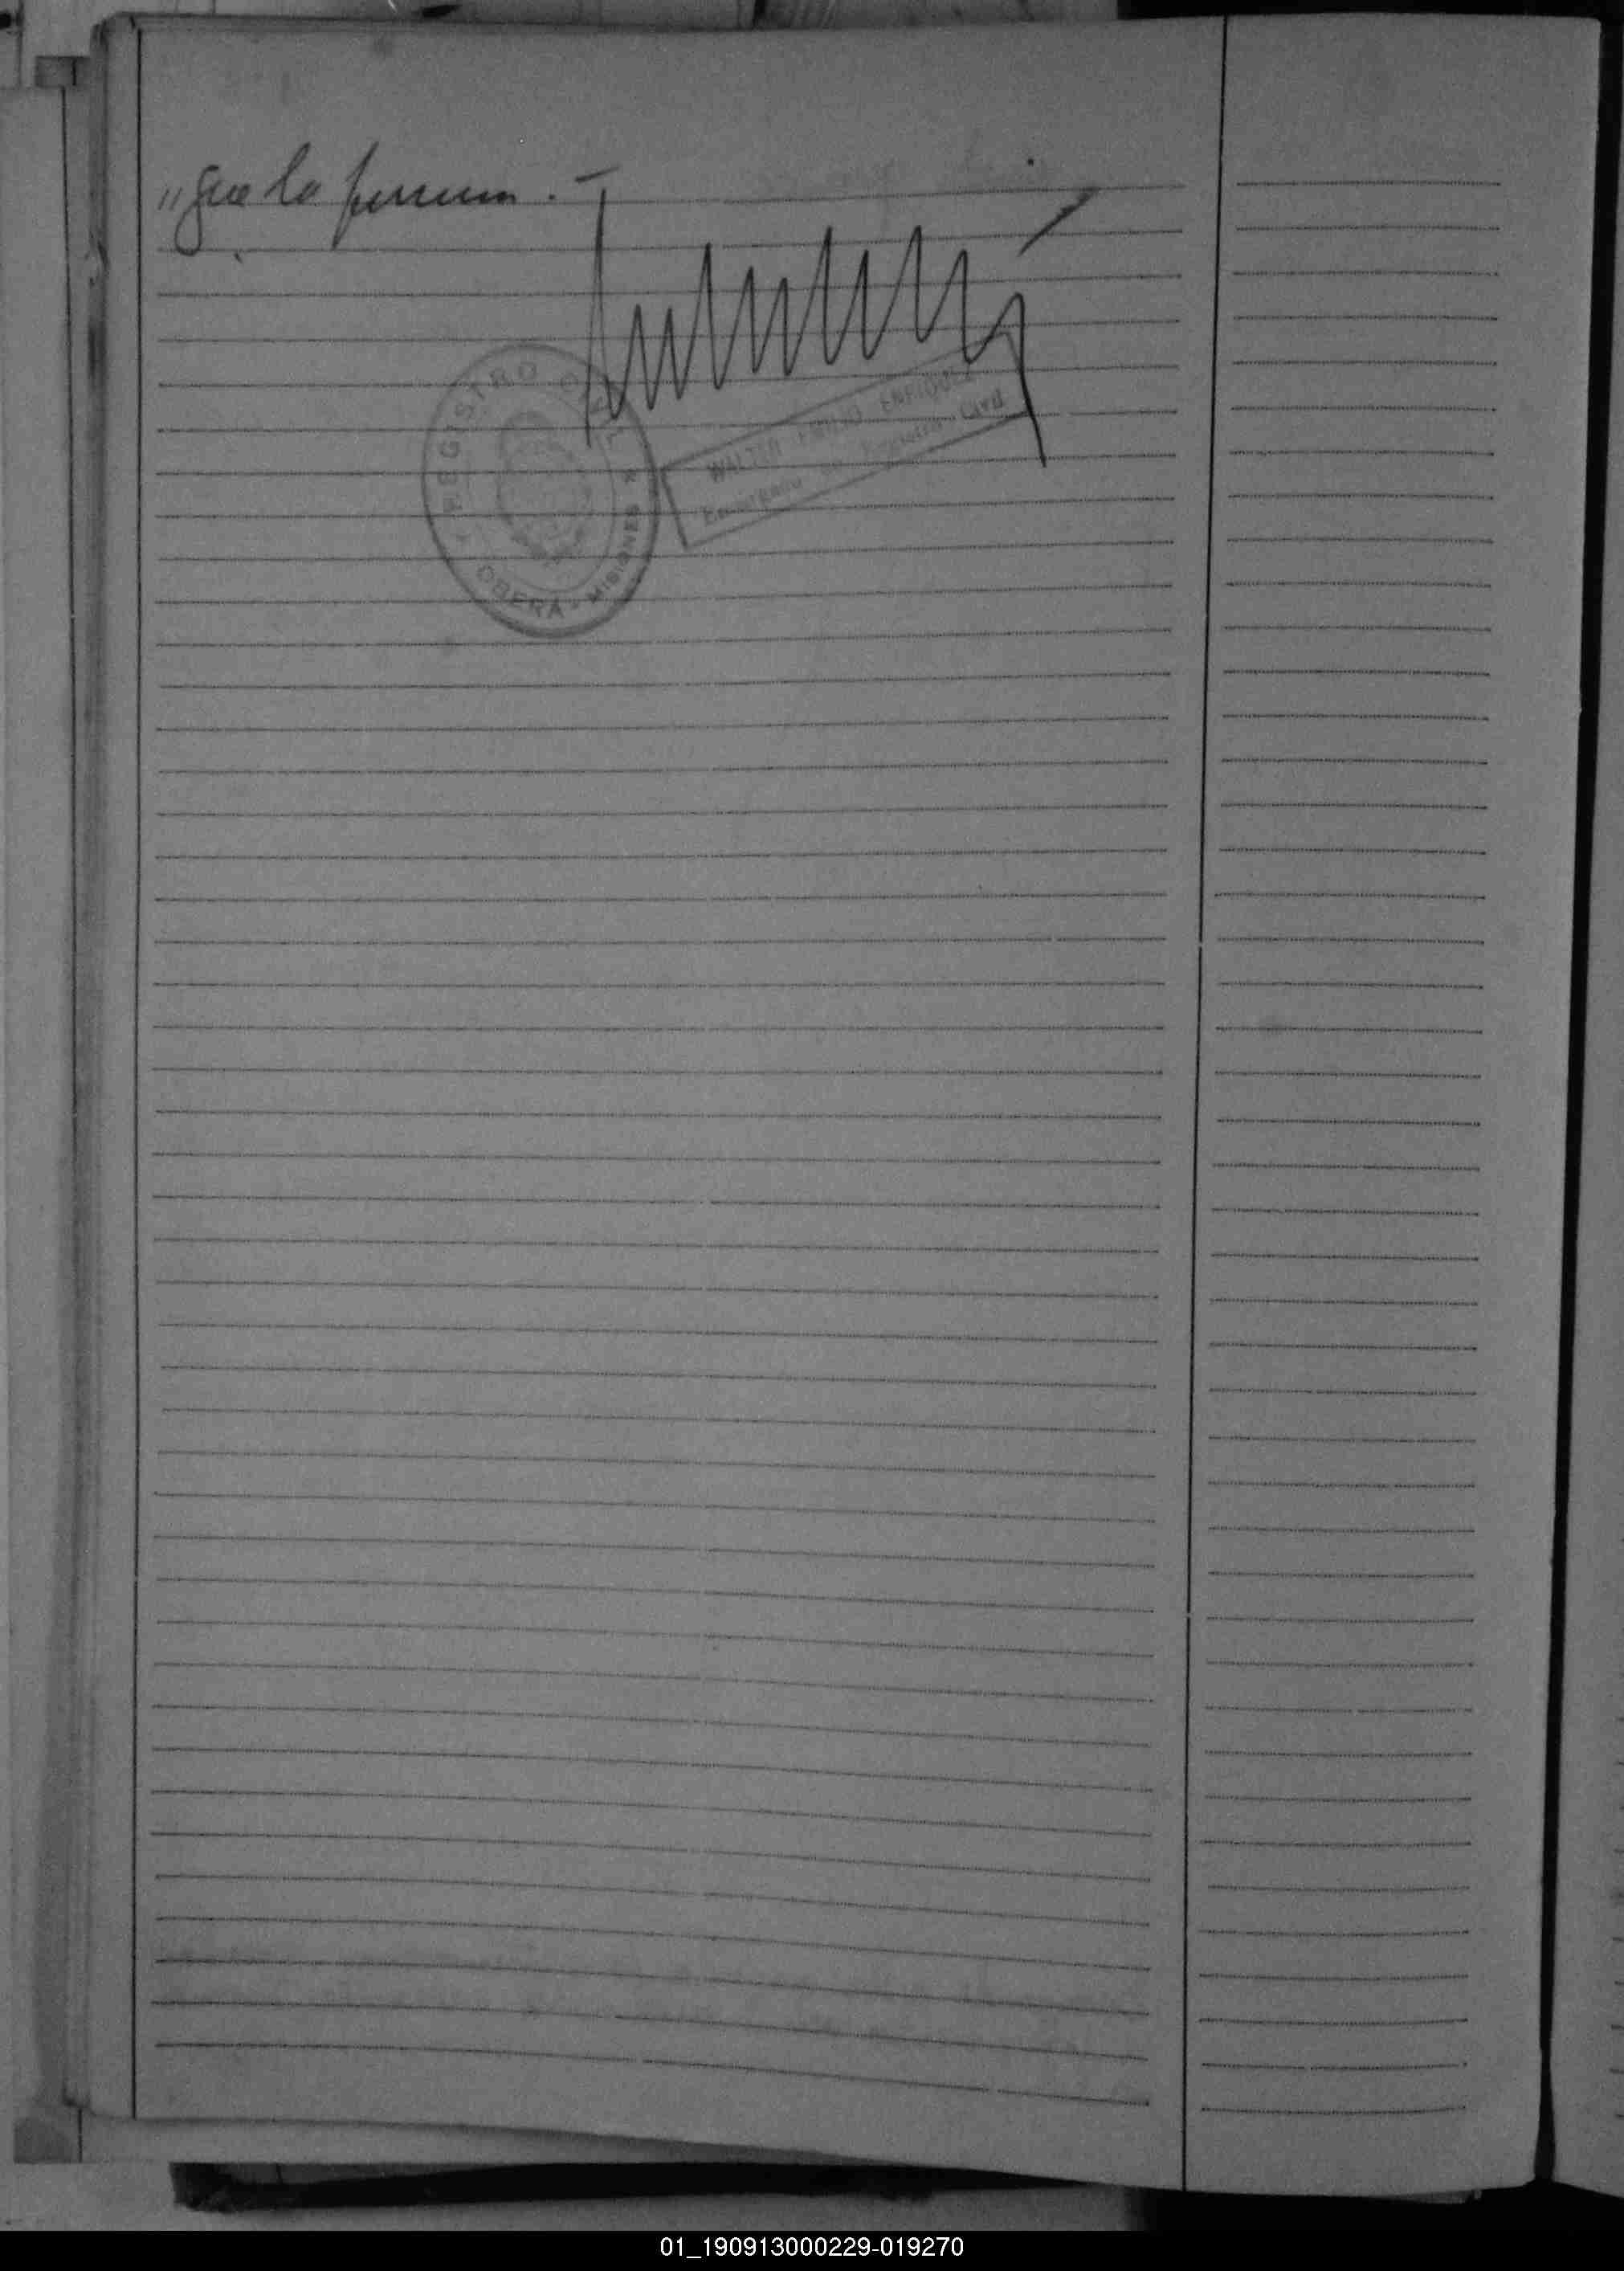 "que la
REGISTRO CIVIL
OBERÁ - MISIONES
WALTER EMILIO ENRIQUEZ
Encargado de Registro Civil
01_190913000229-019270